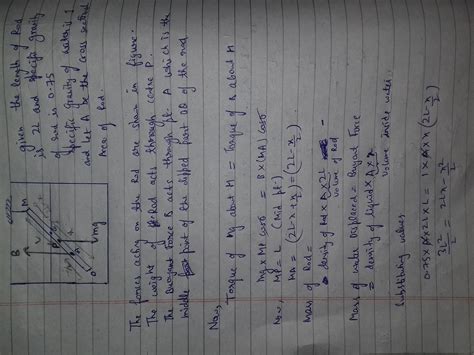 B
M
mg
given the length of Rod
is 2L and specific gravity
of rod is 0.75
specific gravity of water is 1
and let A be the cross sectional
Area of Rod.
The forces acting on the Rod are shown in figure.
The weight of Rod acts through centre P.
The Buoyant force B acts through pt. A which is the
middle point of the dipped part of the rod.
Now,
Torque of mg about M = Torque of B about M
mg x MP cosθ = B x (MA) cosθ
MP = L (Mid pt.)
Now, MA = (2L - x + x/2) = (2L - x/2)
mass of Rod =
density of Rod x A x 2L
volume of Rod
Mass of water displaced = Buoyant Force
= density of liquid x A x x
volume inside water
substituting values
0.75 x A x 2L x L = 1 x A x x (2L - x/2)
3L²/2 = 2Lx - x²/2